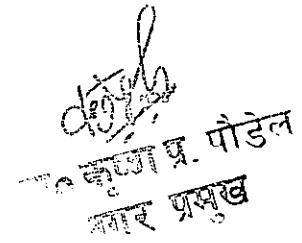 कृष्ण प्र. पौडेल
नगर प्रमुख